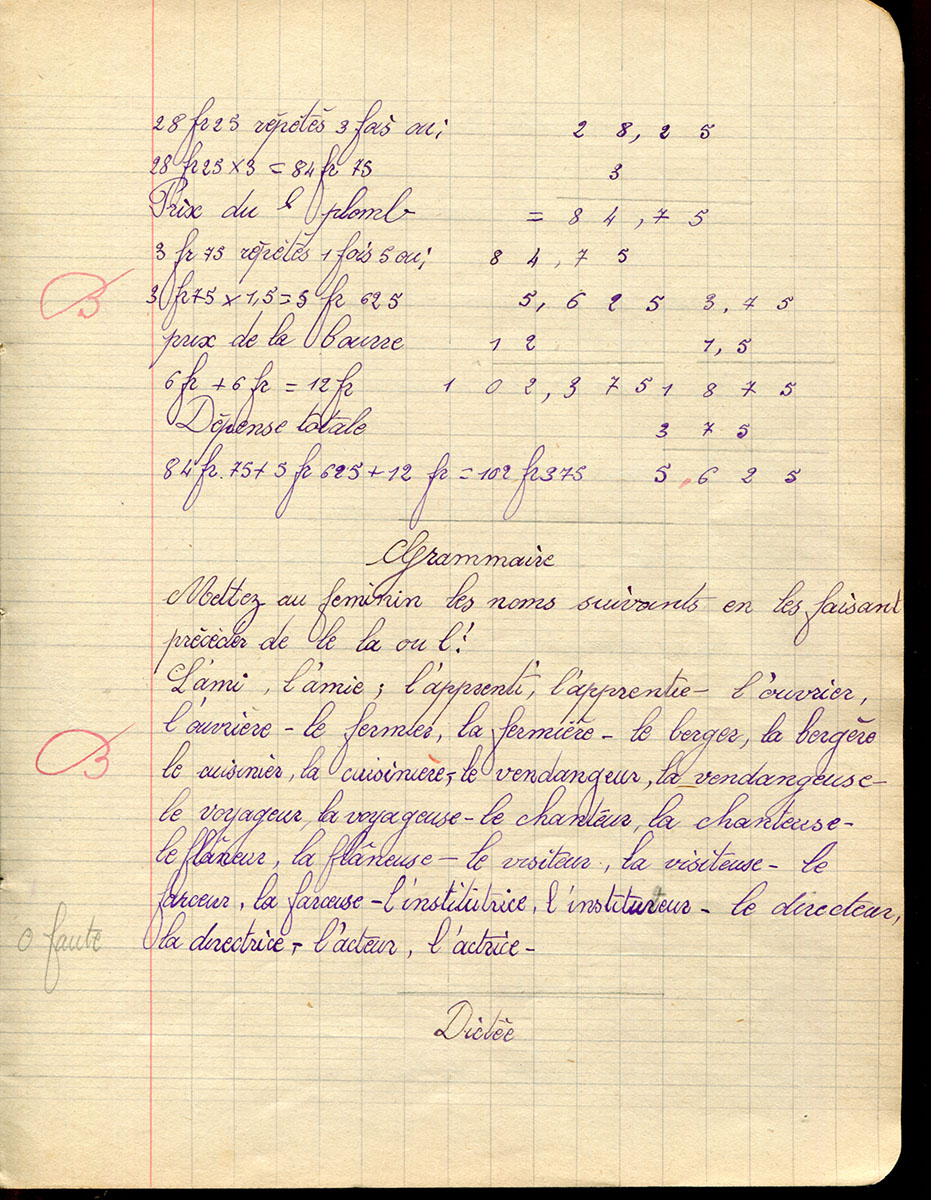 28 fr 25 répétés 3 fois ou; 2 8, 2 5
28 fr 25 × 3 = 84 fr 75 3
Prix du plomb = 8 4, 7 5
3 fr 75 répétés 1 fois 5 ou; 8 4, 7 5
B 3 fr 75 × 1,5 = 5 fr 625 5, 6 2 5 3, 7 5
prix de la bourre 1 2 1, 5
6 fr + 6 fr = 12 fr 1 0 2, 3 7 5 1 8 7 5
Dépense totale 3 7 5
84 fr. 75 + 5 fr 625 + 12 fr = 102 fr 375 5, 6 2 5
Grammaire
Mettez au feminin les noms suivants en les faisant
précéder de le la ou l'.
L'ami, l'amie; l'apprenti, l'apprentie - l'ouvrier,
l'ouvrière - le fermier, la fermière - le berger, la bergère
B le cuisinier, la cuisinière, - le vendangeur, la vendangeuse -
le voyageur, la voyageuse - le chanteur, la chanteuse -
le flâneur, la flâneuse - le visiteur, la visiteuse - le
farceur, la farceuse - l'institutrice, l'instituteur - le directeur,
0 faute la directrice, - l'acteur, l'actrice -
Dictée